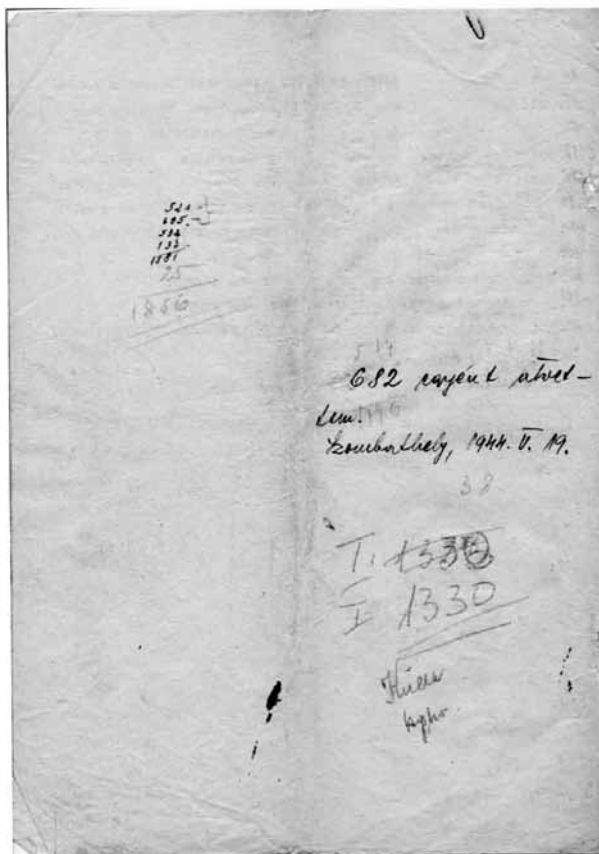 521
695.-
534
131
1881
25
1856
514
682 egyént átvet-
tem.
Szombathely, 1944. V. 19.
38
I. 1332
I 1330